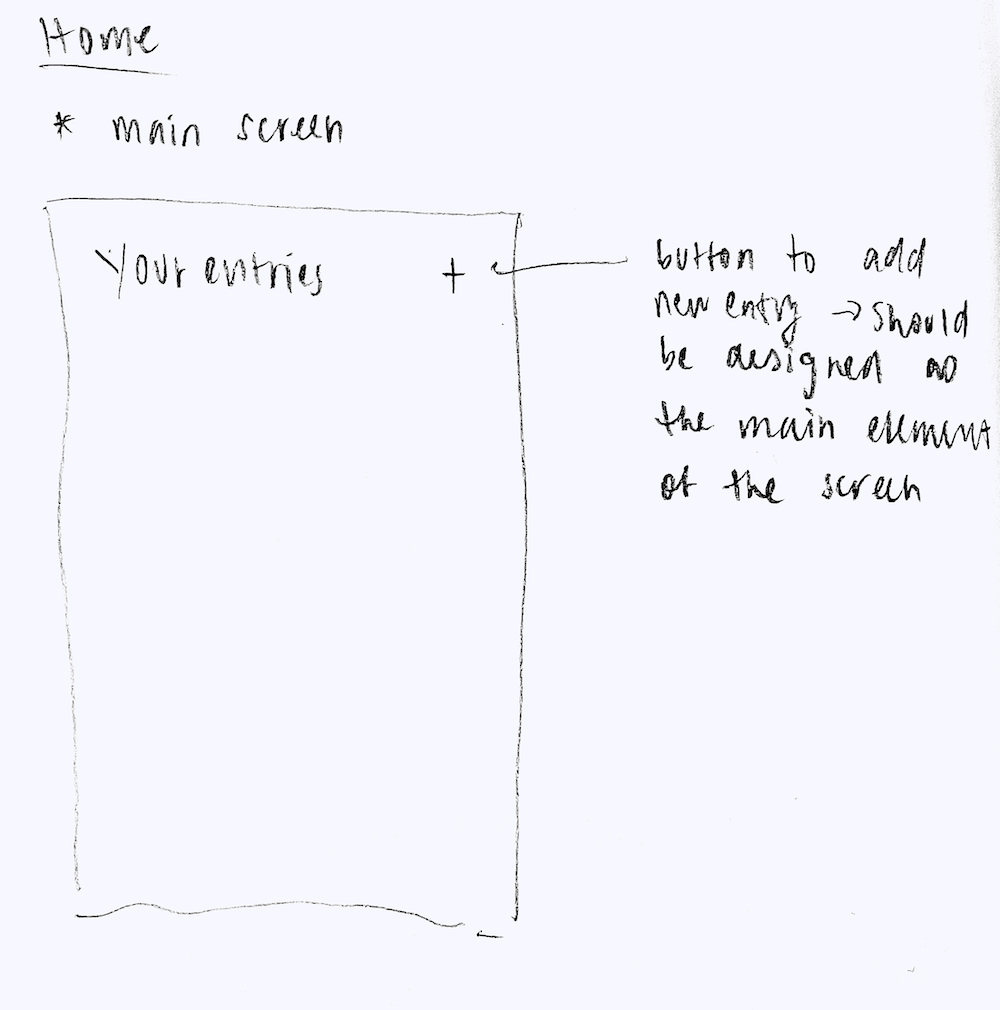 Home
* main screen
Your entries +
button to add
new entry → should
be designed as
the main element
of the screen